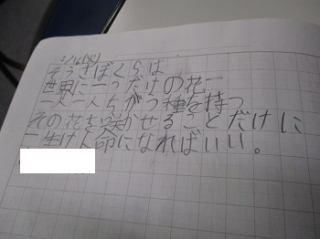 2/14(火)
そうさぼくらは
世界に一つだけの花一
一人一人ちがう種を持つ
その花を咲かせることだけに
一生けん命になればいい。